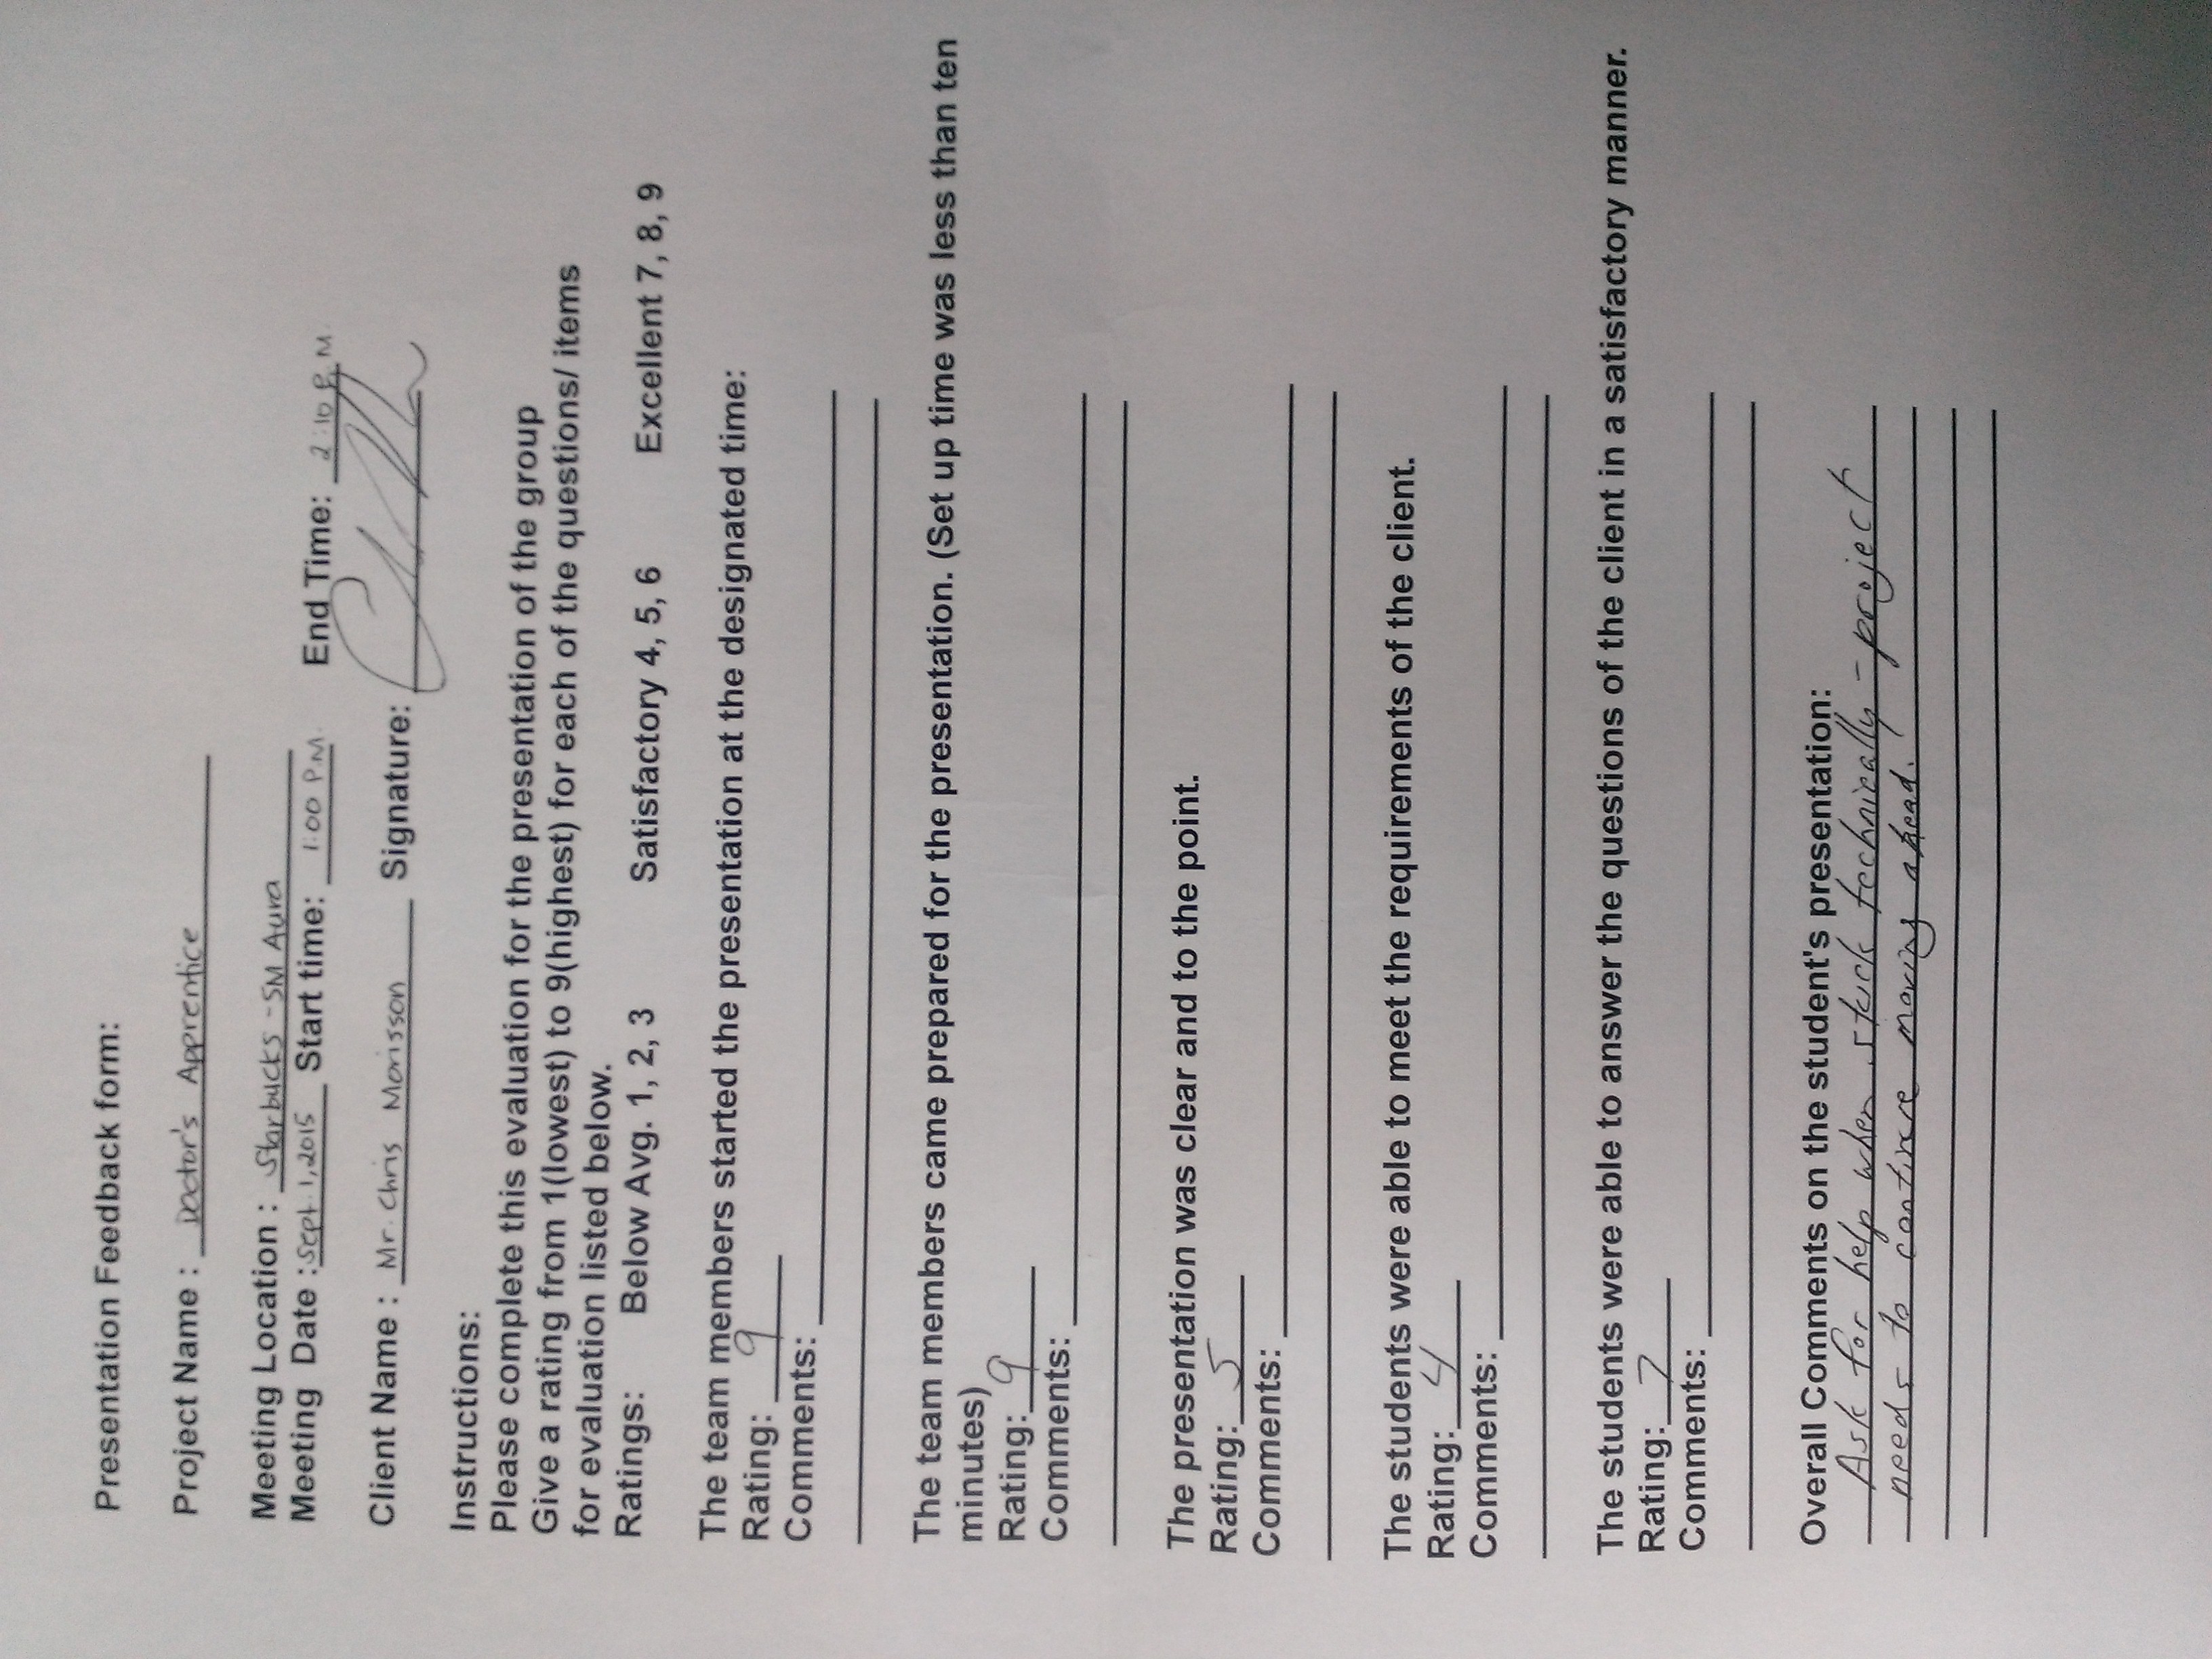 Presentation Feedback form:
Project Name : Doctor's Apprentice
Meeting Location : Starbucks - SM Aura
Meeting Date : Sept. 1, 2015 Start time: 1:00 P.M. End Time: 2:10 P.M.
Client Name : Mr. Chris Morisson Signature:
Instructions:
Please complete this evaluation for the presentation of the group
Give a rating from 1(lowest) to 9(highest) for each of the questions/ items
for evaluation listed below.
Ratings: Below Avg. 1, 2, 3 Satisfactory 4, 5, 6 Excellent 7, 8, 9
The team members started the presentation at the designated time:
Rating: 9
Comments:
The team members came prepared for the presentation. (Set up time was less than ten
minutes)
Rating: 9
Comments:
The presentation was clear and to the point.
Rating: 5
Comments:
The students were able to meet the requirements of the client.
Rating: 4
Comments:
The students were able to answer the questions of the client in a satisfactory manner.
Rating: 7
Comments:
Overall Comments on the student's presentation:
Ask for help when stuck technically - project
needs to continue moving ahead.